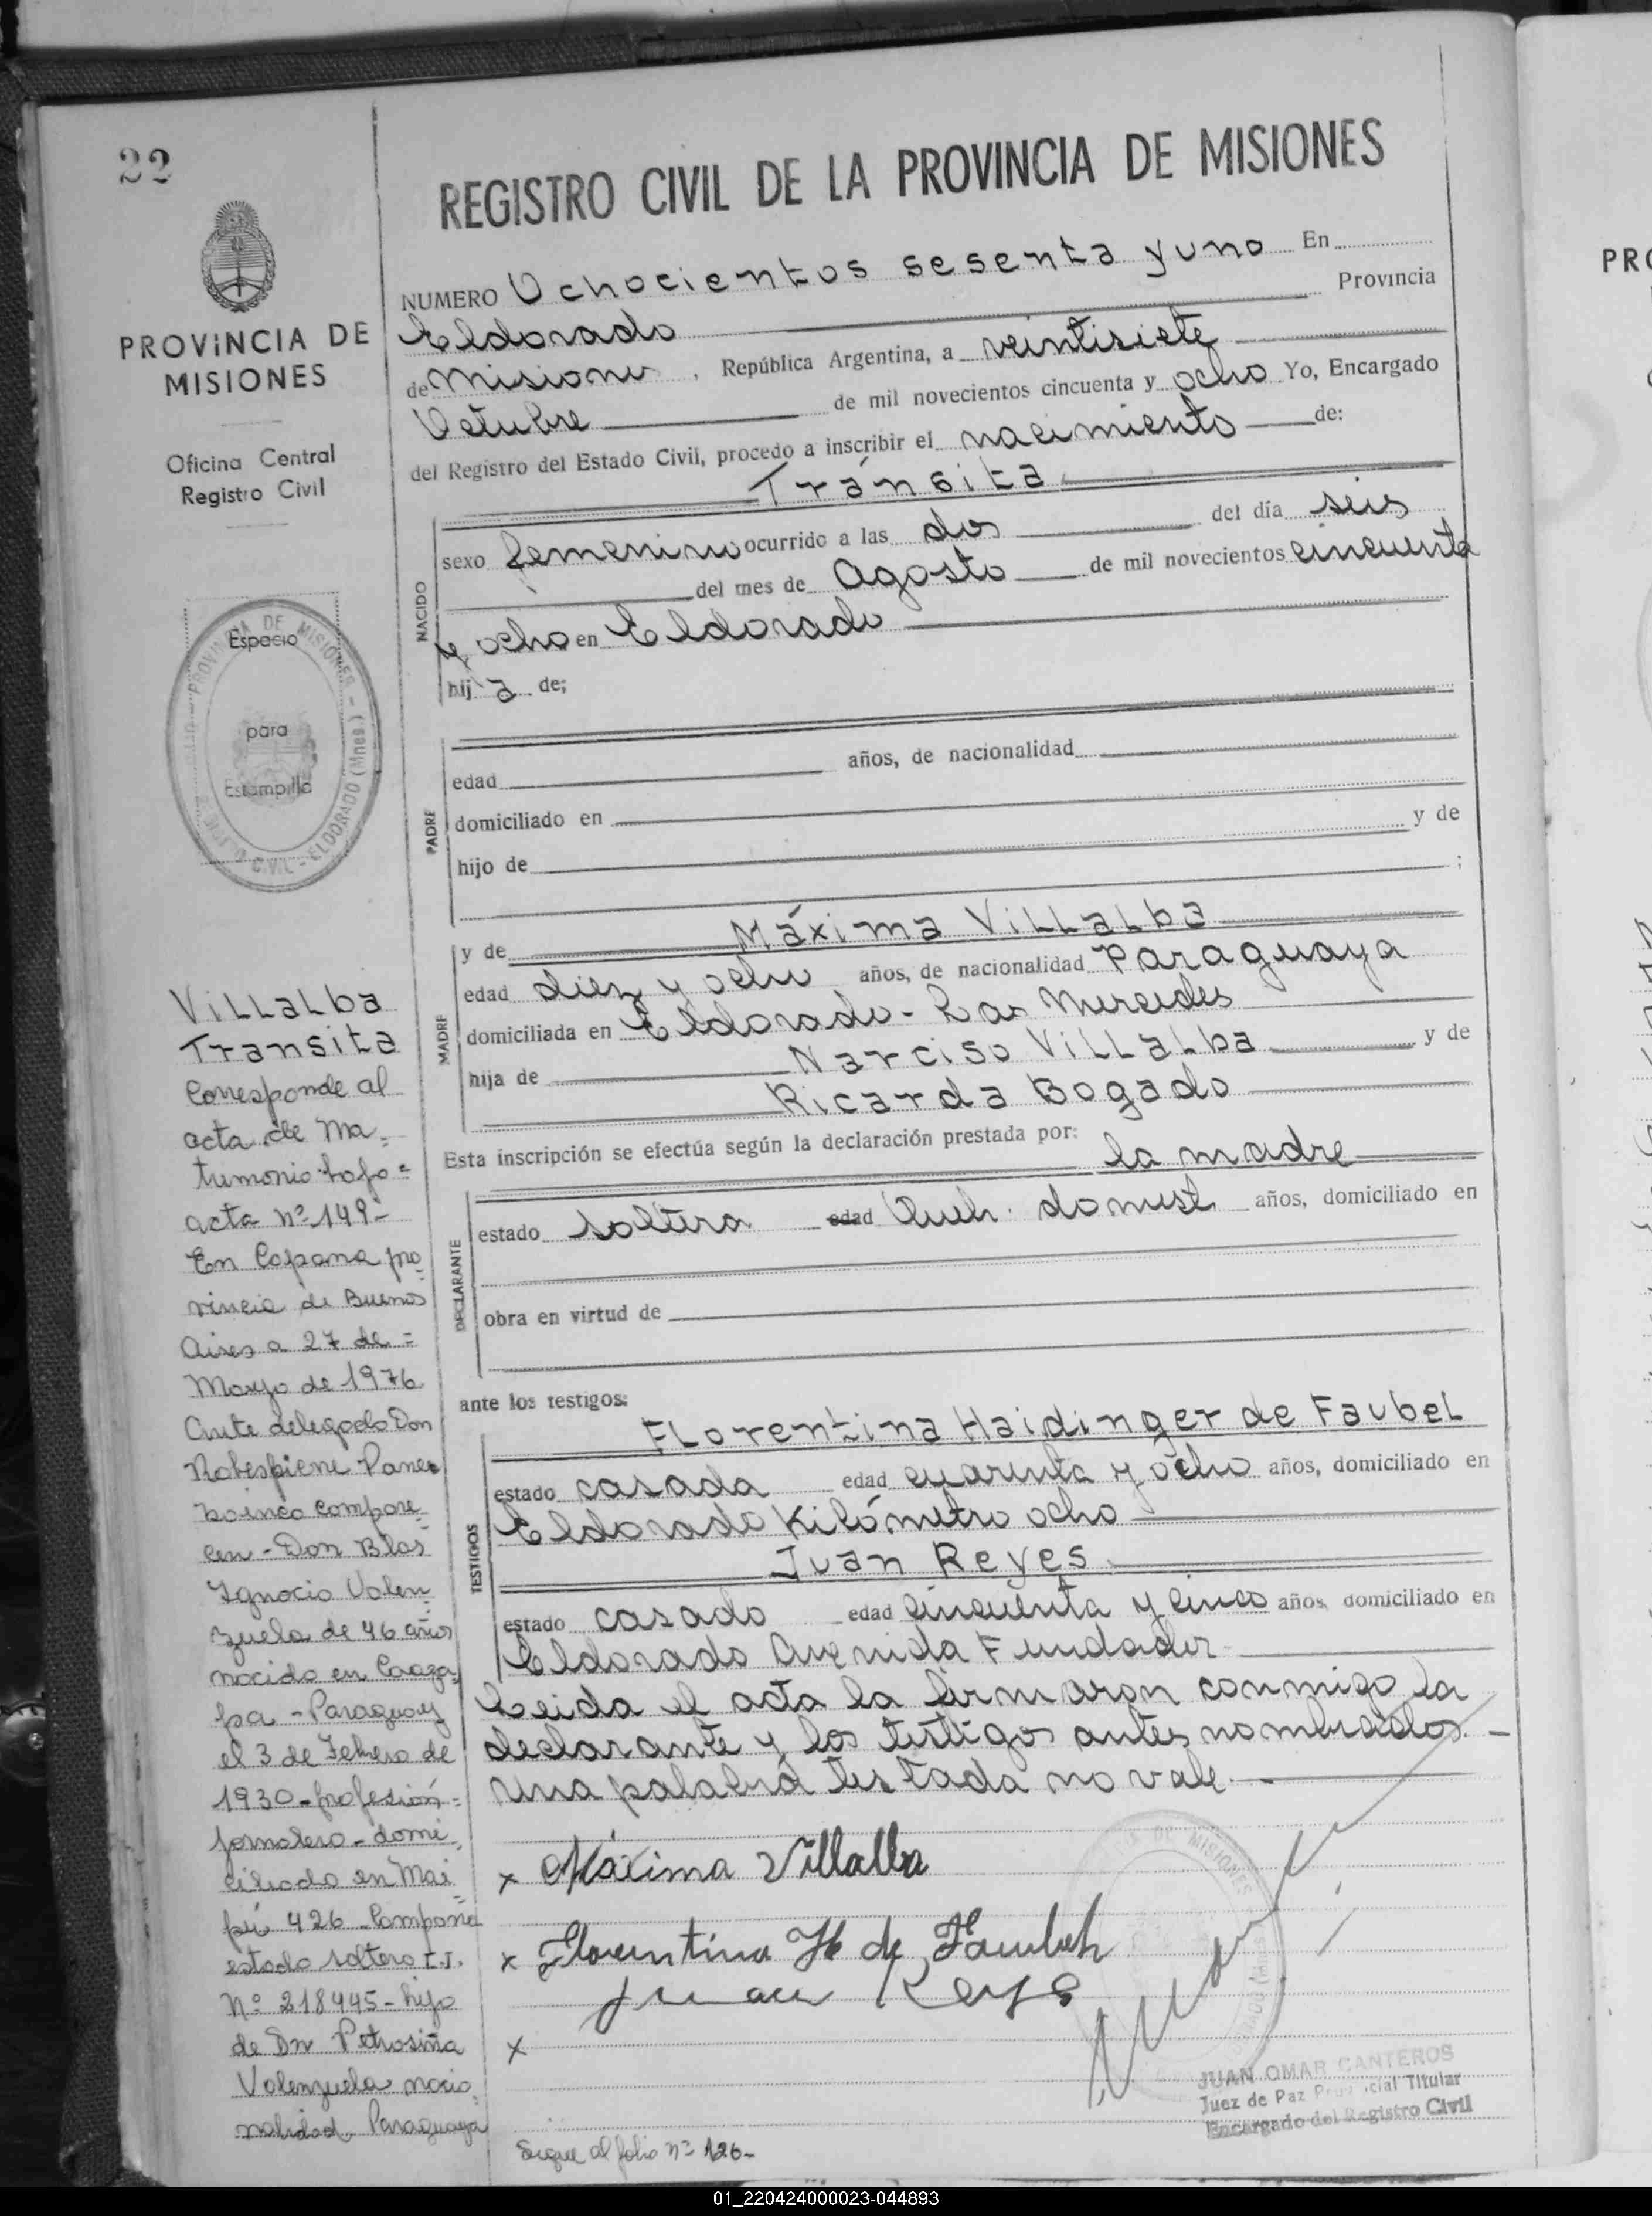 22
REGISTRO CIVIL DE LA PROVINCIA DE MISIONES
PROVINCIA DE
MISIONES
Oficina Central
Registro Civil
Espacio
para
Estampilla
PROVINCIA DE MISIONES - ELDORADO (Mnes.)
NUMERO Ochocientos sesenta y uno En
Eldorado Provincia
de Misiones, República Argentina, a veintisiete
Octubre de mil novecientos cincuenta y ocho Yo, Encargado
del Registro del Estado Civil, procedo a inscribir el nacimiento de:
Tránsita
NACIDO
sexo femenino ocurrido a las dos del día seis
del mes de Agosto de mil novecientos cincuenta
y ocho en Eldorado
hija de;
PADRE
edad años, de nacionalidad
domiciliado en
hijo de y de
;
MADRE
y de Máxima Villalba
edad diez y ocho años, de nacionalidad Paraguaya
domiciliada en Eldorado - Las Mercedes
hija de Narciso Villalba y de
Ricarda Bogado
Esta inscripción se efectúa según la declaración prestada por: la madre
DECLARANTE
estado soltera edad Queh. domest. años, domiciliado en
obra en virtud de
ante los testigos:
TESTIGOS
Florentina Haidinger de Faubel
estado casada edad cuarenta y ocho años, domiciliado en
Eldorado Kilómetro ocho
Juan Reyes
estado casado edad cincuenta y cinco años, domiciliado en
Eldorado Avenida Fundador
Leida el acta la firmaron conmigo la
declarante y los testigos antes nombrados. -
Una palabra testada no vale. -
x Máxima Villalba
x Florentina H de Faubel
Juan Reyes
x
JUAN OMAR CANTEROS
Juez de Paz Provincial Titular
Encargado del Registro Civil
Sigue al folio nº 126-
Villalba
Transita
Corresponde al
acta de Ma=
trimonio
acta nº 149-
En Caspana pro
vincia de Buenos
Aires a 27 de =
Mayo de 1976
Ante delegado Don
compare
cen - Don Blas
Ignacio Valen
zuela de 46 años
nacido en Caaza
pa - Paraguay
el 3 de Febrero de
1930 - profesión =
jornalero - domi
ciliado en Mai
pú 426 - Campana
estado soltero C.I.
Nº 218445 - hijo
de Dn Petrosiña
Valenzuela nacio
nalidad Paraguaya
PRO
01_220424000023-044893